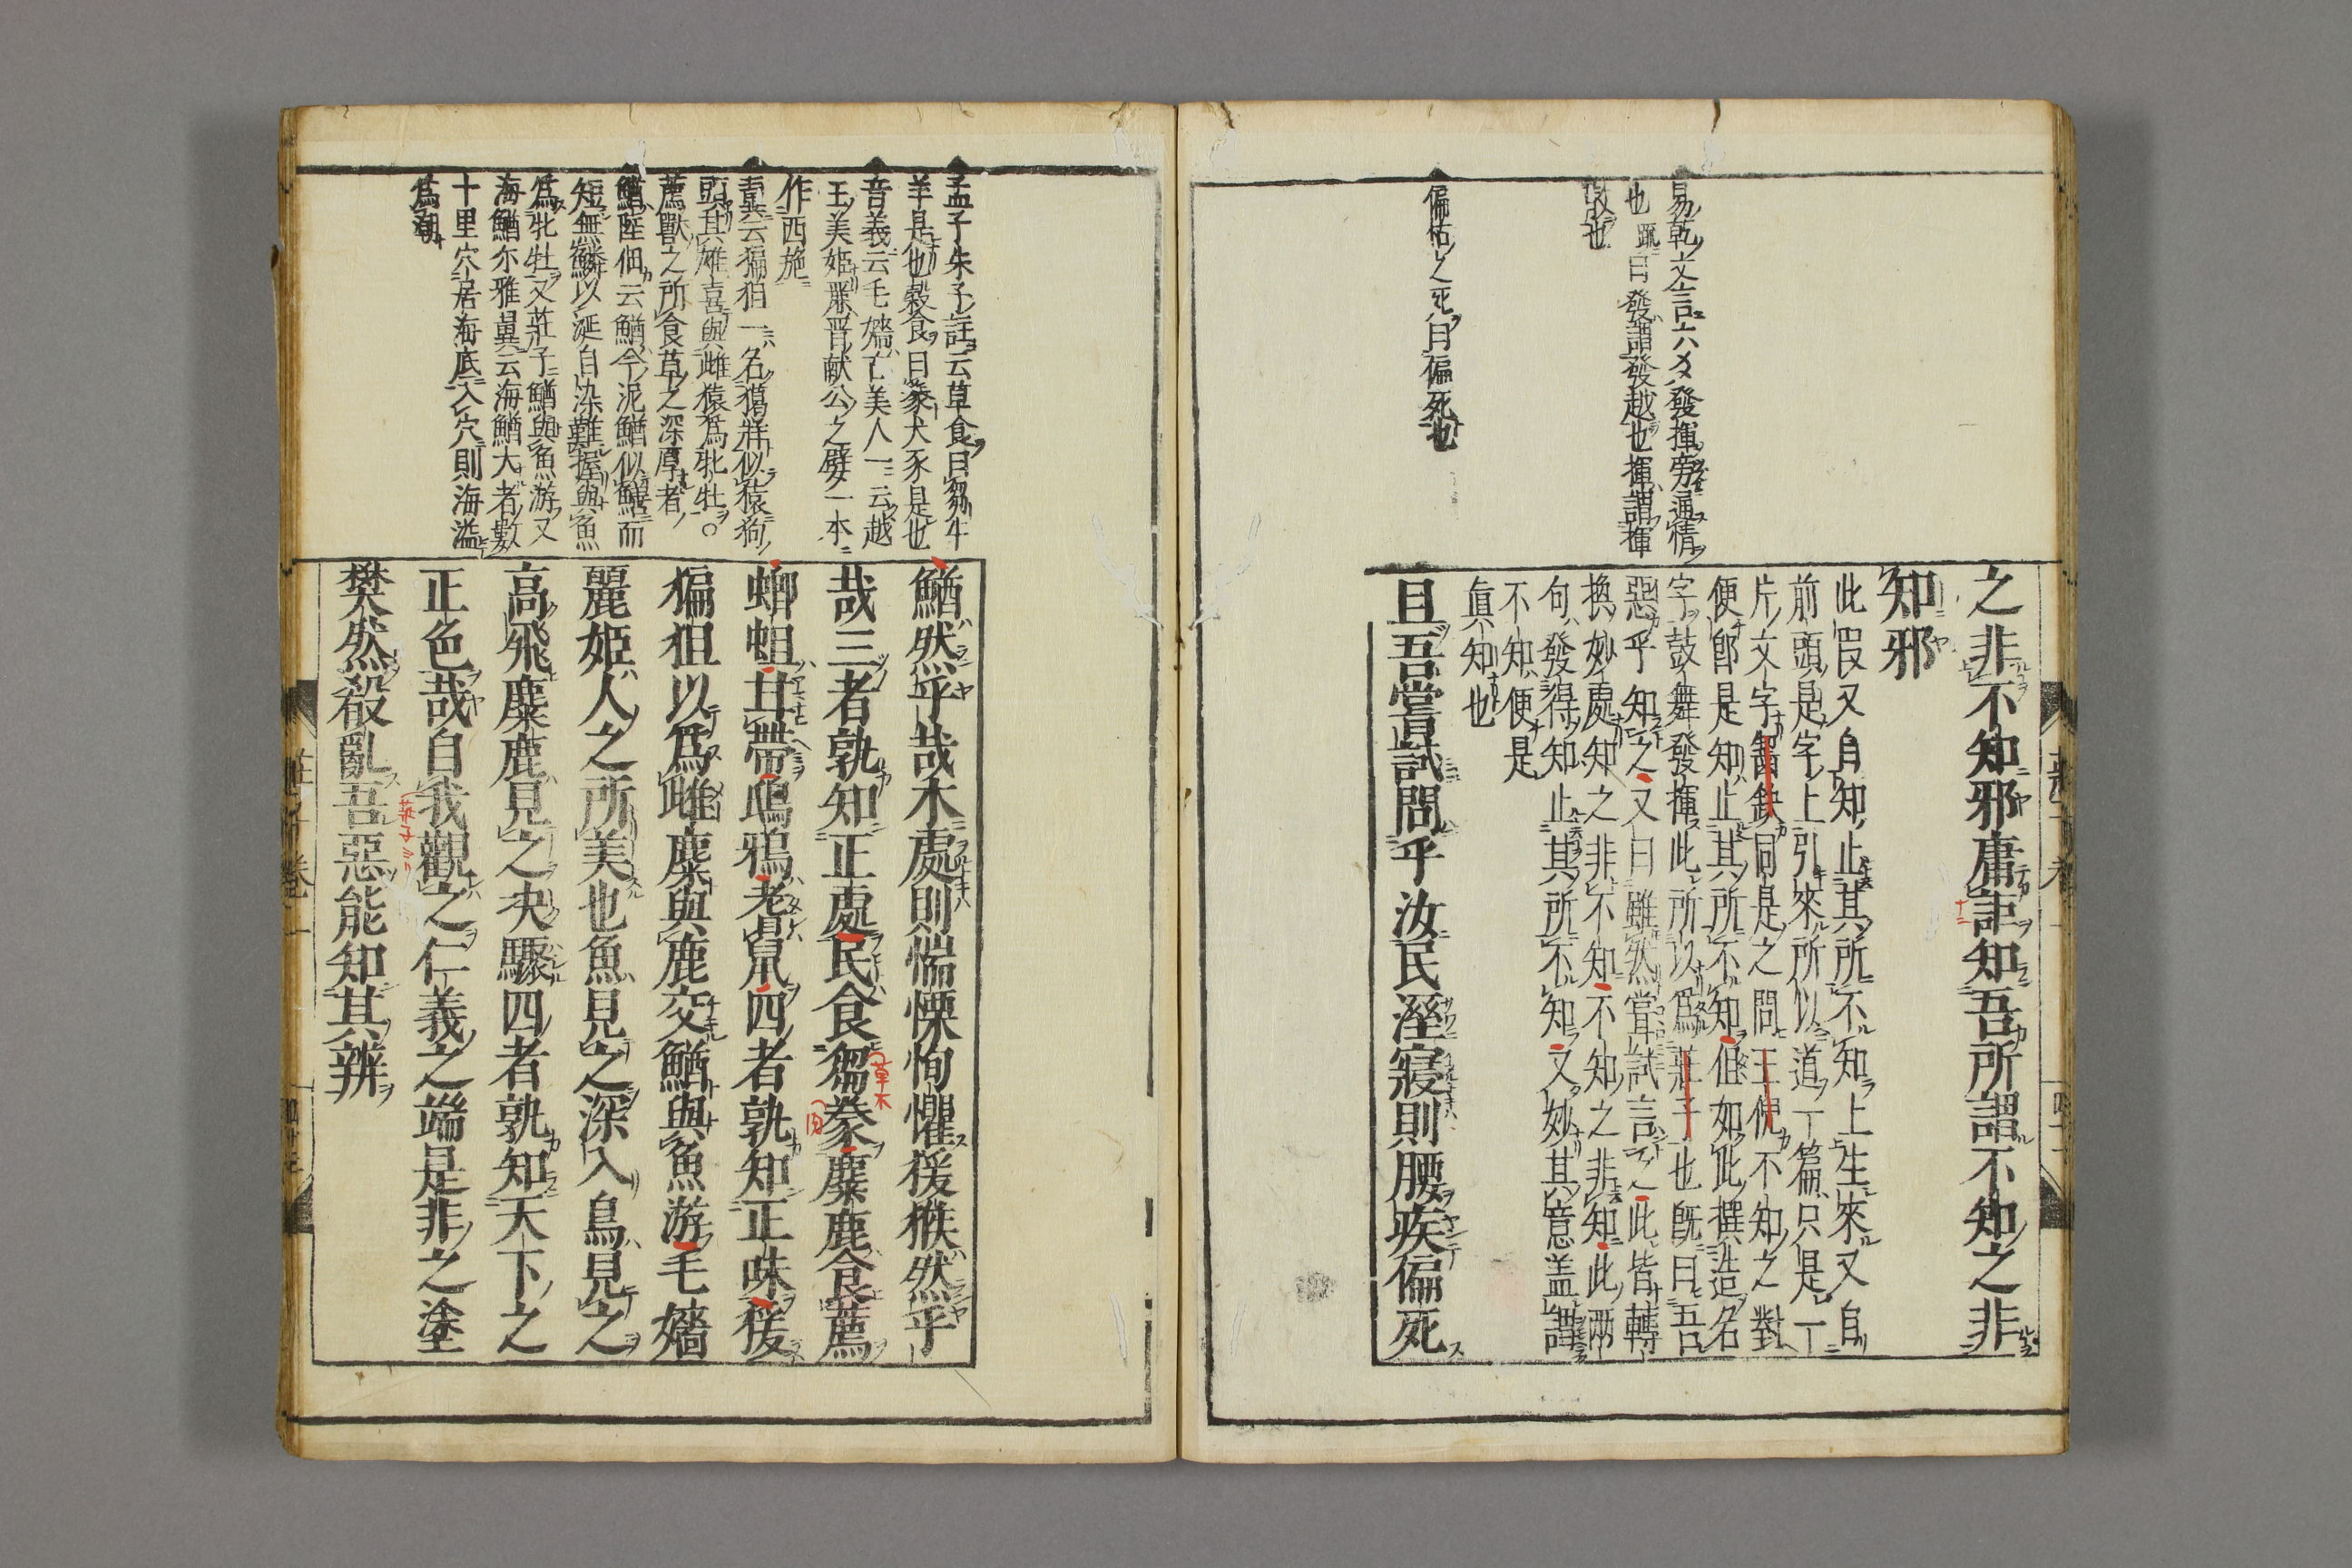 易乾文言六爻發揮旁通情
也疏曰發謂發越也揮謂揮
散也
偏枯之死曰偏死也
之非不知邪庸詎知吾所謂不知之非
知邪
此段又自知止其所不知上生來又自
前頭是字上引來所以道丁篇只是一
片文字齧缺同是之問王倪不知之對
便即是知止其所不知但如此撰造名
字鼓舞發揮此所以爲莊子也既曰吾
惡乎知之又曰雖然嘗試言之此皆轉
換妙處知之非不知不知之非知此兩
句發得知止其所不知又妙其意盖謂
不知便是
眞知也
且吾嘗試問乎汝民溼寢則腰疾偏死
孟子朱子註云草食曰芻牛
羊是也穀食曰豢犬豕是也
音義云毛嬙古美人一云越
王美姬麗晋献公之嬖一本
作西施
冀云猵狙一名獦牂似猿狗
頭其雄喜與雌猿爲牝牡○
薦獸之所食草之深厚者
鰌陸佃云鰌今泥鰌似鱓而
短無鱗以涎自染難握與魚
爲牝牡又莊子鰌與魚游又
海鰌尓雅翼云海鰌大者數
十里穴居海底入穴則海溢
爲潮
鰌然乎哉木處則惴慄恂懼猨猴然乎
哉三者孰知正處民食芻豢麋鹿食薦
蝍蛆甘帶鴟鴉耆鼠四者孰知正味猨
猵狙以爲雌麋與鹿交鰌與魚游毛嬙
麗姬人之所美也魚見之深入鳥見之
高飛麋鹿見之决驟四者孰知天下之
正色哉自我觀之仁義之端是非之塗
樊然殽亂吾惡能知其辨
草木
肉
莊子